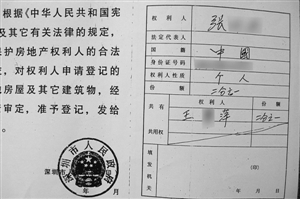 根据《中华人民共和国宪
及其它有关法律的规定，
保护房地产权利人的合法
益，对权利人申请登记的
地房屋及其它建筑物，经
查审定，准予登记，发给
深圳市人民政府
深圳市
年 月
权利人 张
法定代表人
国籍 中國
身份证号码
权利人性质 个人
份额 二分之一
共有 权利人 份额
王 萍 二分之一
共用权
填发机关
(印)
年 月